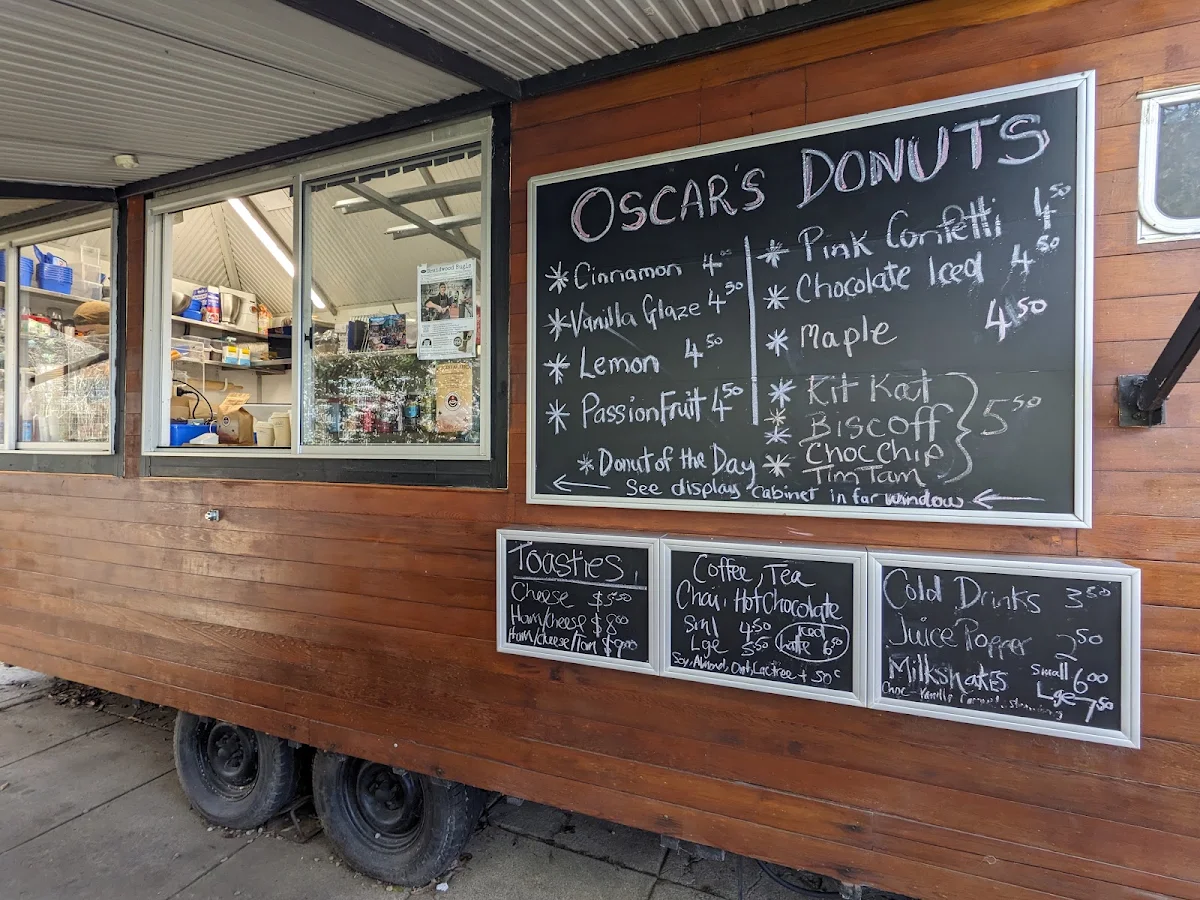 OSCAR'S DONUTS
* Cinnamon 4.00
* Vanilla Glaze 4.50
* Lemon 4.50
* PassionFruit 4.50
* Donut of the Day
* Pink Confetti 4.50
* Chocolate Iced 4.50
* Maple 4.50
* Kit Kat
* Biscoff
* ChocChip
* TimTam
} 5.50
← See display cabinet in far window ←
Toasties
Cheese $5.50
Ham/cheese $8.00
Ham/cheese/Tom $9.00
Coffee, Tea
Chai, Hot Chocolate
Sml 4.50
Lge 5.50
Iced Latte 6.50
Soy, Almond, Oat, Lactfree + 50c
Cold Drinks 3.50
Juice Popper 2.50
Milkshakes Small 6.00
Lge 7.50
Choc - Vanilla Caramel
Braidwood Bugle